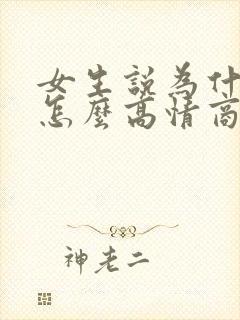 女生説為什
怎麼高情商
神老二